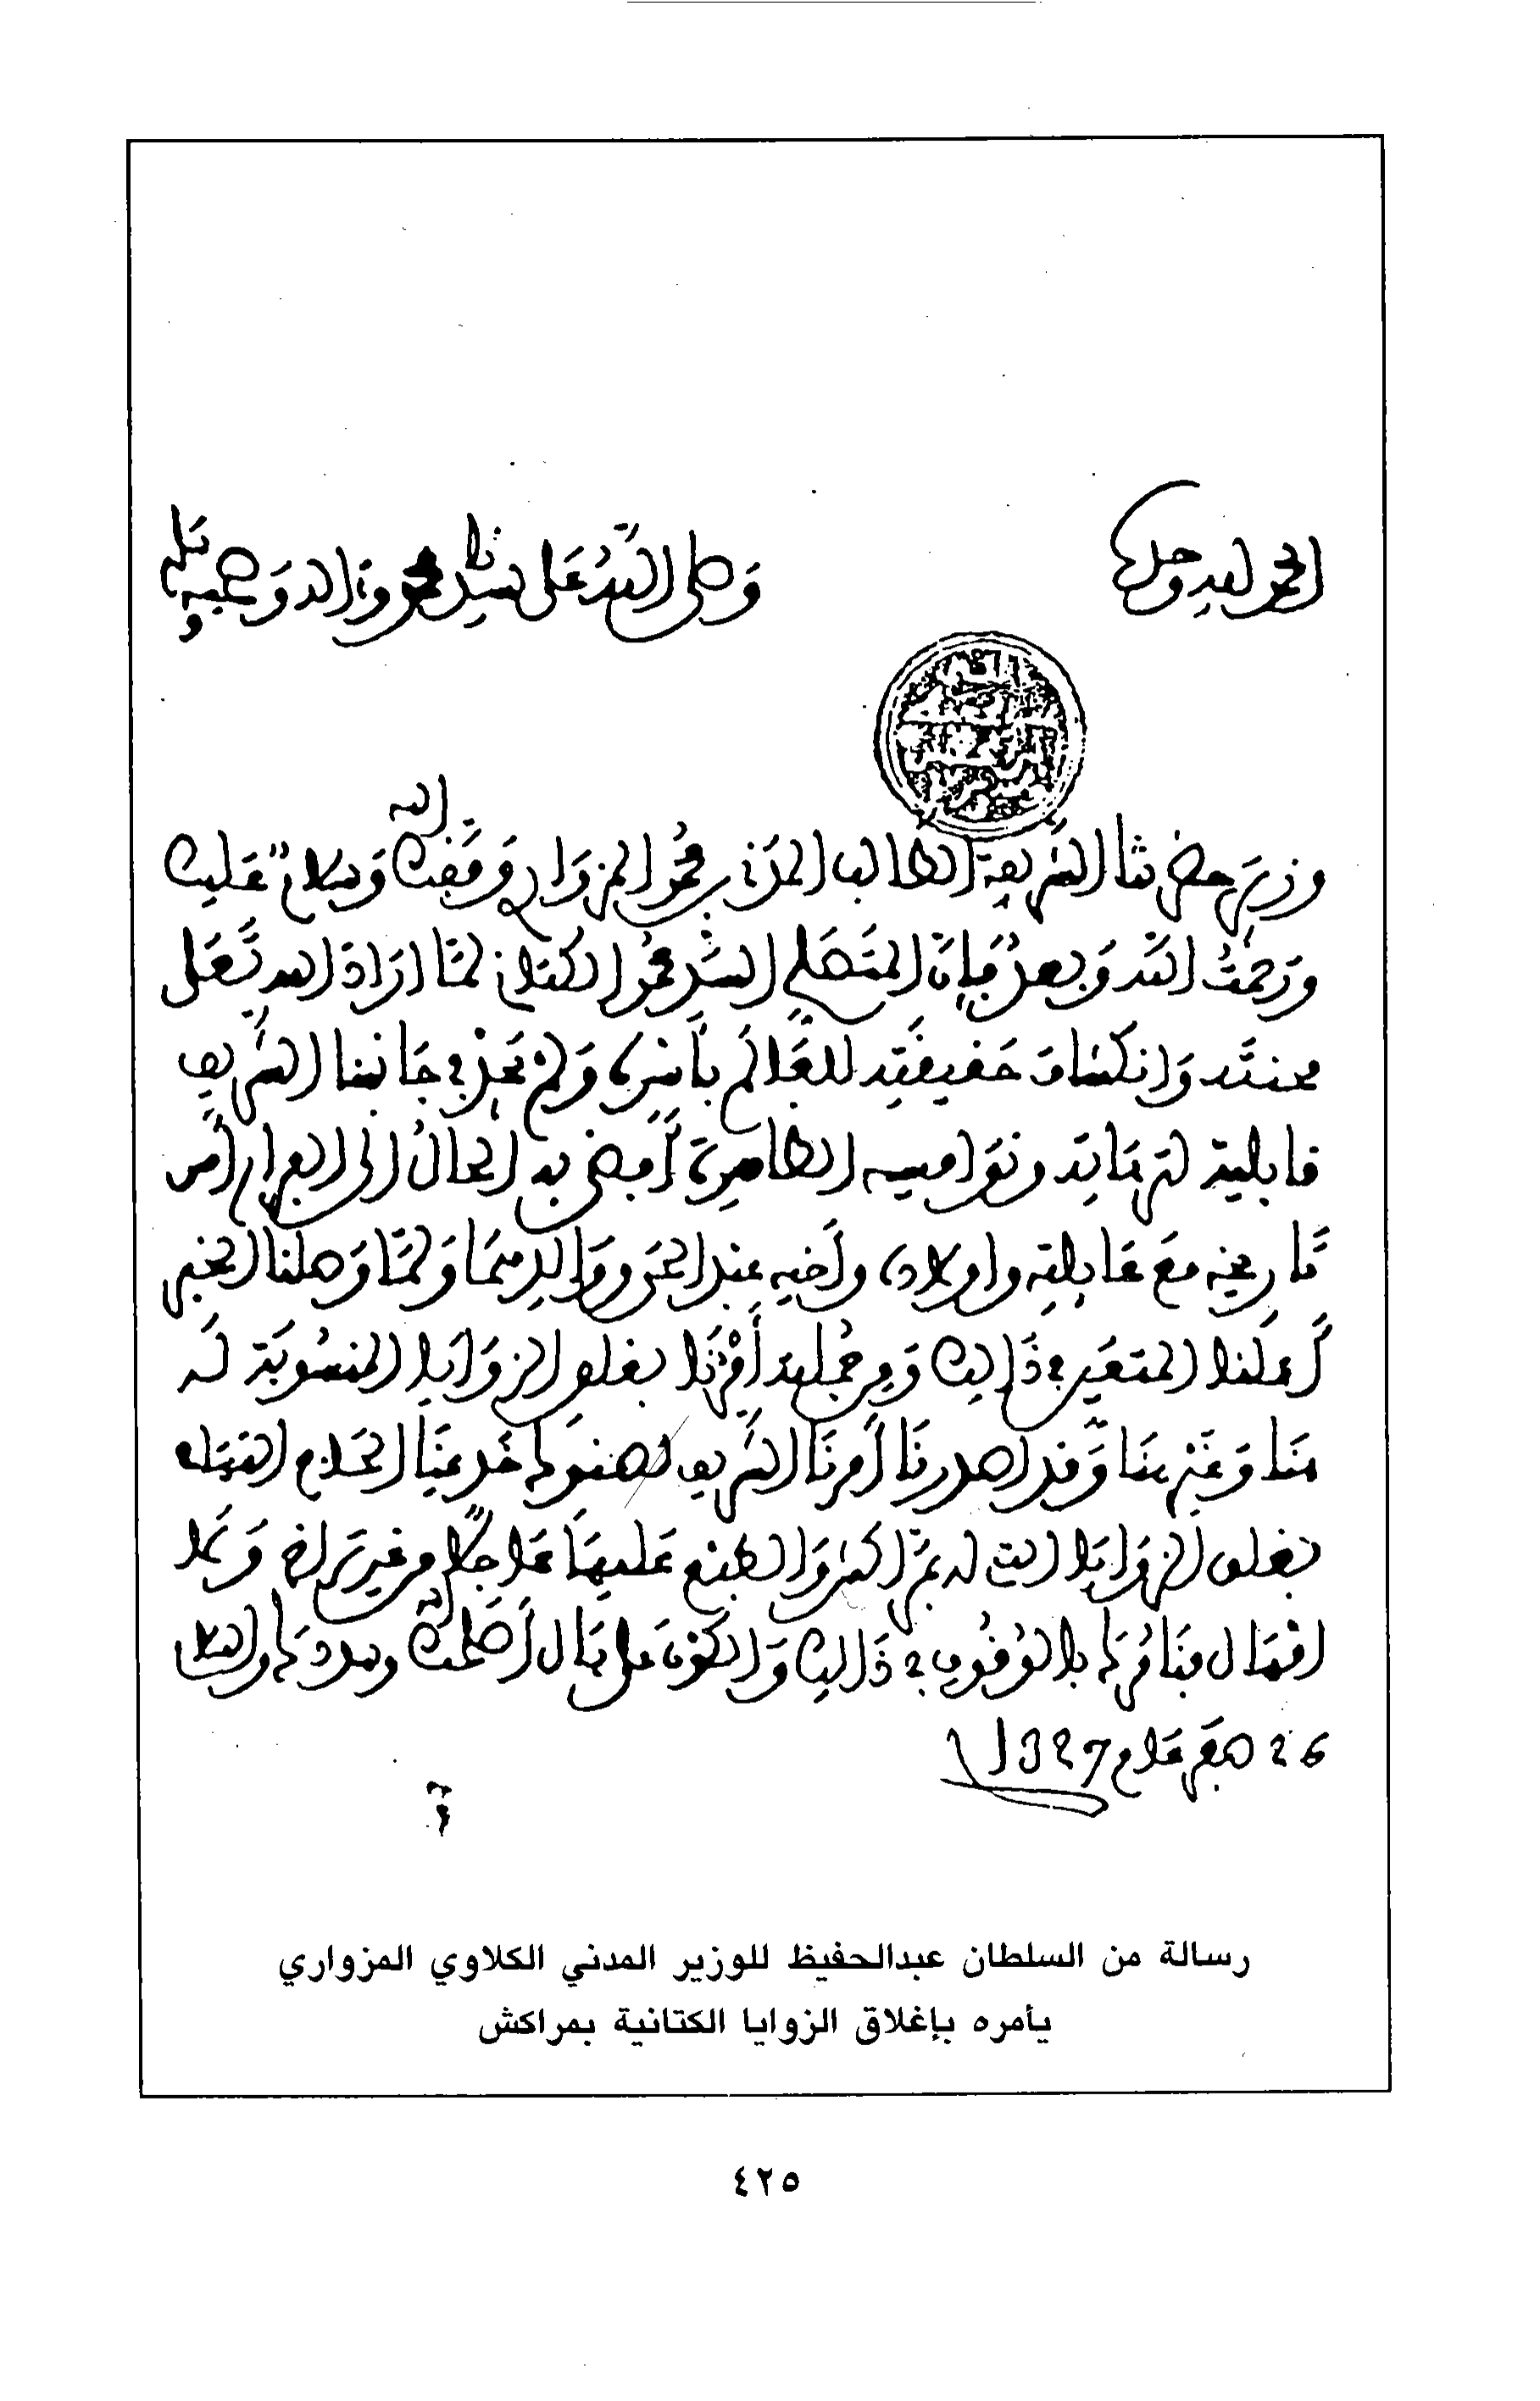 الحمد لله وحده
وصلى الله على سيدنا محمد وءاله وصحبه وسلم
وزير حضرتنا الشريفة الطالب المدني بن محمد المزوار وفقك الله وسلام عليك
ورحمت الله وبعد فإن المتصلي السيد محمد الكتاني لما اراد الله تعلى
محنته وانكشاف حقيقته للعالم بأسره ولم يجد في جانبنا الشريف
قابلية لترهاته ونواميسه الظاهرة أفضى به الحال إلى الفرار أمس
تاريخه مع عايلته واولاده وأخيه عبد الحي ووالدهما ولما وصلنا الخبر
أعملنا المتعين في ذالك ومن جملته أمرنا بغلق الزوايا المنسوبة له
هنا وغير هنا وقد اصدرنا أمرنا الشريف لصنوكم خديمنا الحاج التهامي
بغلق الزوايا التي له بمراكش والطبع عليها عاجلا من غير تراخ ولا
اهمال فنامركم بالوقوف في ذالك والكون على بال أصلحك الله وسددكم والسلام
26 صفر عام 1327
رسالة من السلطان عبدالحفيظ للوزير المدني الكلاوي المزواري
يأمره بإغلاق الزوايا الكتانية بمراكش
٤٢٥